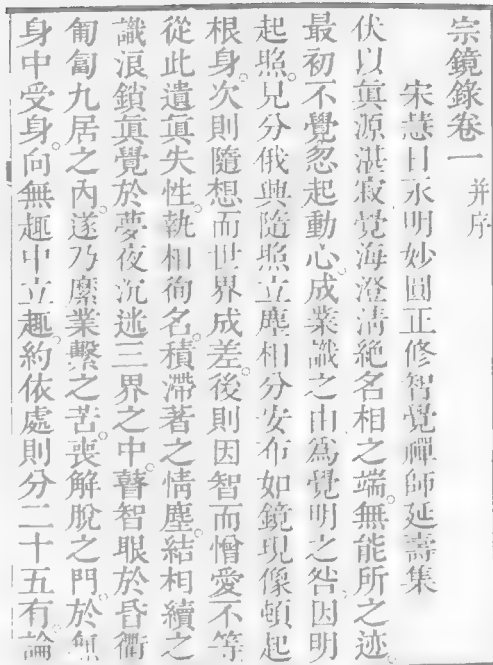 宗鏡錄卷一 并序
宋慧日永明妙圓正修智覺禪師延壽集
伏以眞源湛寂覺海澄淸絕名相之端。無能所之迹。
最初不覺忽起動心。成業識之由爲覺明之咎。因明
起照。見分俄興隨照立塵相分安布如鏡現像頓起
根身。次則隨想而世界成差。後則因智而憎愛不等
從此遺眞失性。執相徇名。積滯著之情塵。結相續之
識浪鎖眞覺於夢夜沉迷三界之中。瞽智眼於昏衢
匍匐九居之內。遂乃縻業繫之苦。喪解脫之門。於無
身中受身。向無趣中立趣。約依處則分二十五有。論